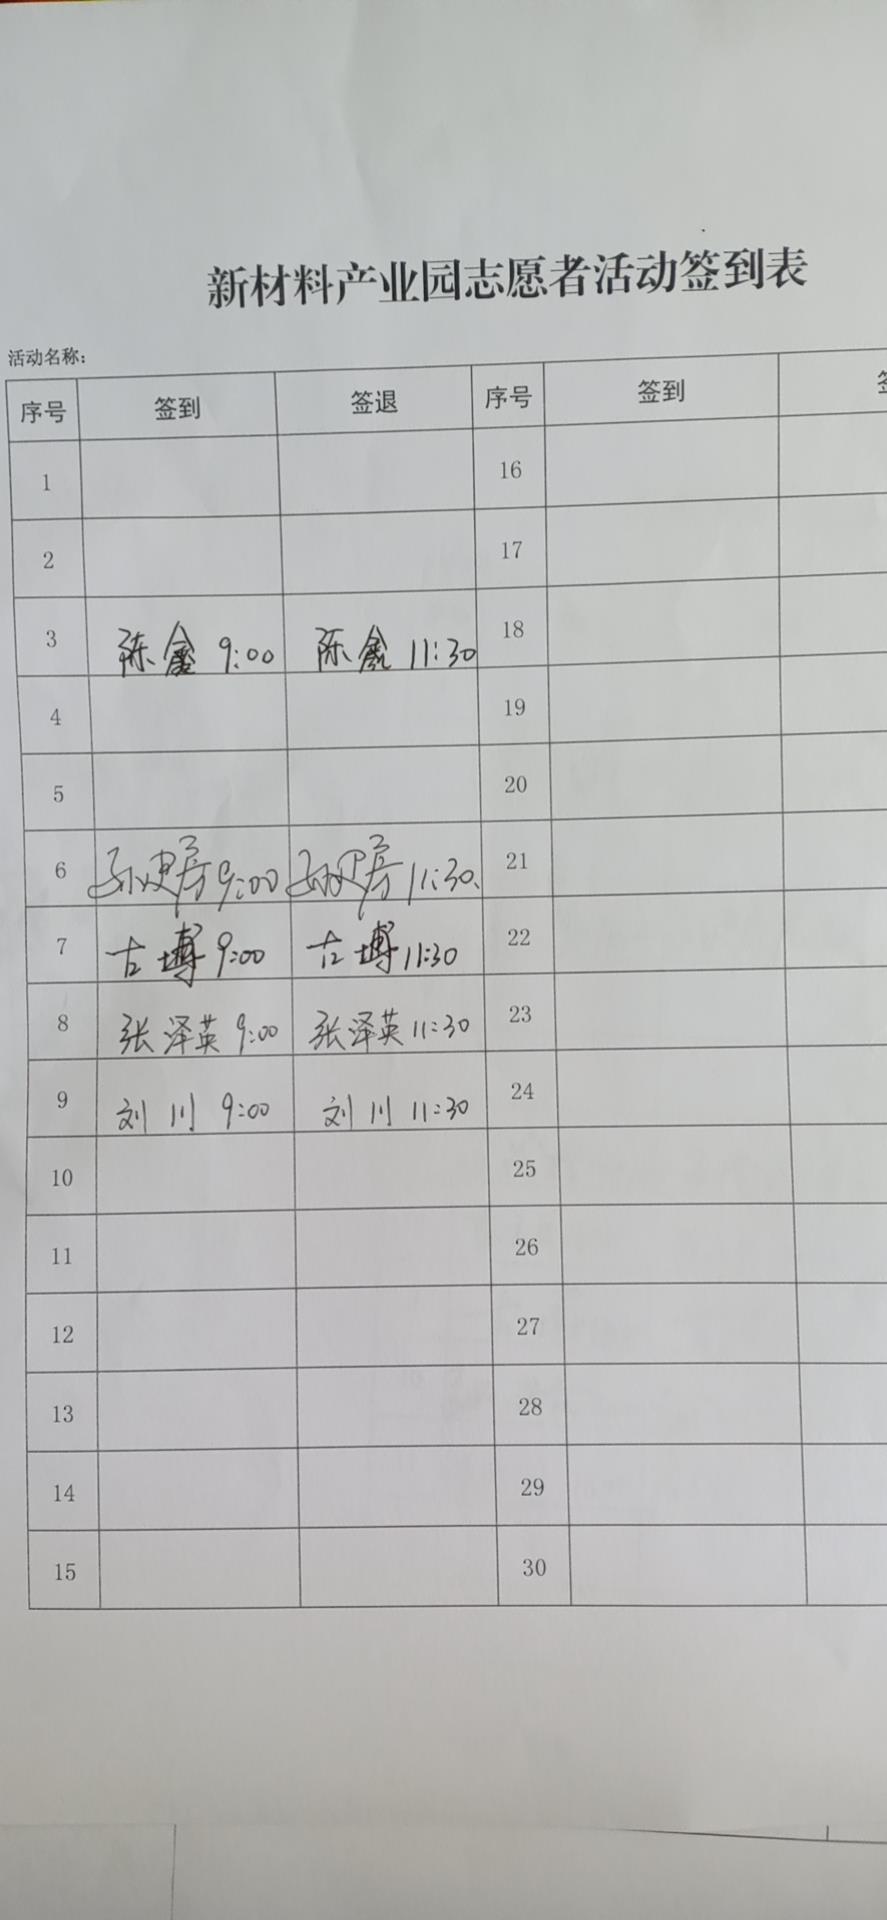 新材料产业园志愿者活动签到表
活动名称：
序号 签到 签退 序号 签到
1 16
2 17
3 陈鑫 9:00 陈鑫 11:30 18
4 19
5 20
6 孙 房 9:00 孙 房 11:30 21
7 古博 9:00 古博 11:30 22
8 张泽英 9:00 张泽英 11:30 23
9 刘川 9:00 刘川 11:30 24
10 25
11 26
12 27
13 28
14 29
15 30